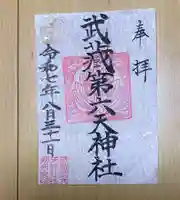 奉拝
武蔵第六天神社
令和七年八月三十一日